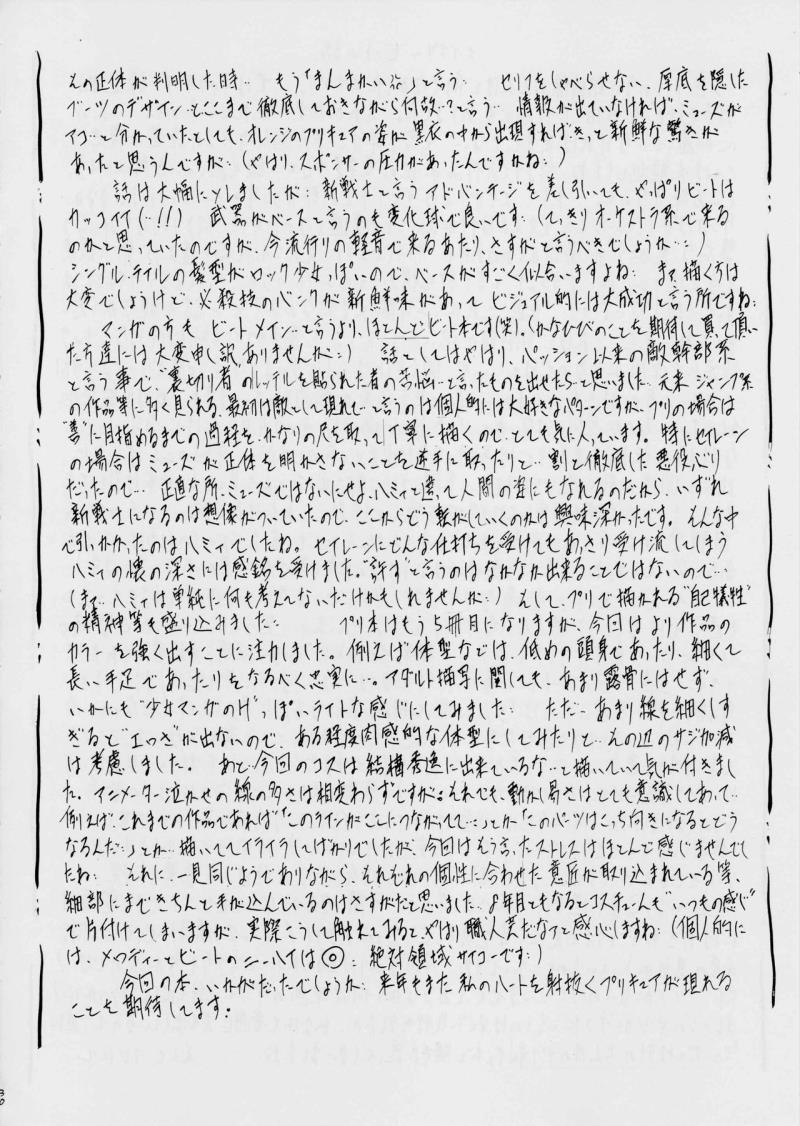 その正体が判明した時… もう「まんまかい!!」と言う… セリフをしゃべらせない、厚底を隠した
ブーツのデザイン…とここまで徹底しておきながら何故…?と言う… 情報が出ていなければ、ミューズが
アコ…と分かっていたとしても、オレンジのプリキュアの姿が黒衣の中から出現すれば、きっと新鮮な驚きが
あったと思うんですが…(やはり、スポンサーの圧力があったんですかね…)
話は大幅にソレましたが… 新戦士と言うアドバンテージを差し引いても、やっぱりビートは
カッコイイ(…!!) 武器がベースと言うのも変化球で良いです…(てっきりオーケストラ系で来る
のかと思っていたのですが、今流行りの軽音で来るあたり、さすがと言うべきでしょうか…)
シングル・テイルの髪型がロック少女っぽいので、ベースがすごく似合いますよね… まあ描く方は
大変でしょうけど、必殺技のバンクが新鮮味があって ビジュアル的には大成功と言う所ですね…
マンガの方も ビートメイン…と言うより、ほとんどビート本です(笑)。(かなひびのことを期待して買って頂い
た方達には大変申し訳ありませんが…) 話としてはやはり、パッション以来の敵幹部系
と言う事で、"裏切り者"のレッテルを貼られた者の苦悩…と言ったものを出せたら…と思いました… 元来ジャンプ系
の作品等に多く見られる、最初は敵として現れて…と言うのは個人的には大好きなパターンですが、プリの場合は
"善"に目指めるまでの過程を、かなりの尺を取って丁寧に描くので、とても気に入っています。特にセイレーン
の場合はミューズが正体を明かさないことを逆手に取ったりと… 割と徹底した悪役ぶり
だったので… 正直な所、ミューズではないにせよ、ハミィと違って人間の姿にもなれるのだから、いずれ
新戦士になるのは想像がついていたので、ここからどう転がしていくのかは興味深かったです。そんな中
で引っかかったのはハミィでしたね。セイレーンにどんな仕打ちを受けてもあっさり受け流してしまう
ハミィの懐の深さには感銘を受けました。"許す"と言うのはなかなか出来ることではないので…
(まあ…ハミィは単純に何も考えてないだけかもしれませんが…) そして、プリで描かれる"自己犠牲"
の精神等も盛り込みました… プリ本はもう5冊目になりますが、今回はより作品の
カラーを強く出すことに注力しました。例えば体型などでは、低めの頭身であったり、細くて
長い手足であったりをなるべく忠実に…。アダルト描写に関しても、あまり露骨にはせず、
いかにも"少女マンガのH"っぽいライトな感じにしてみました… ただ…あまり線を細くしす
ぎると"エロさ"が出ないので、ある程度肉感的な体型にしてみたりと…その辺のサジ加減
は考慮しました。 あと…今回のコスは結構秀逸に出来ているな…と描いていて気が付きまし
た。アニメーター泣かせの線の多さは相変わらずですが。それでも、動かし易さはとても意識してあって…
例えば、これまでの作品であれば「このラインがここにつながってて…」とか「このパーツはこっち向きになるとどう
なるんだ…」とか…描いててイライラしてばかりでしたが、今回はそう言ったストレスはほとんど感じませんでし
たね… それに、一見同じようでありながら、それぞれの個性に合わせた意匠が取り込まれている等、
細部にまできちんと手が込んでいるのはさすがだと思いました… 8年目ともなるとコスチュームも"いつもの感じ"
で片付けてしまいますが、実際こうして触れてみると、やはり職人芸だなァと感心しますね…(個人的に
は、メロディーとビートのニーハイは◎… 絶対領域サイコーです…)
今回の本、いかがだったでしょうか… 来年もまた私のハートを射抜くプリキュアが現れる
ことを期待してます…